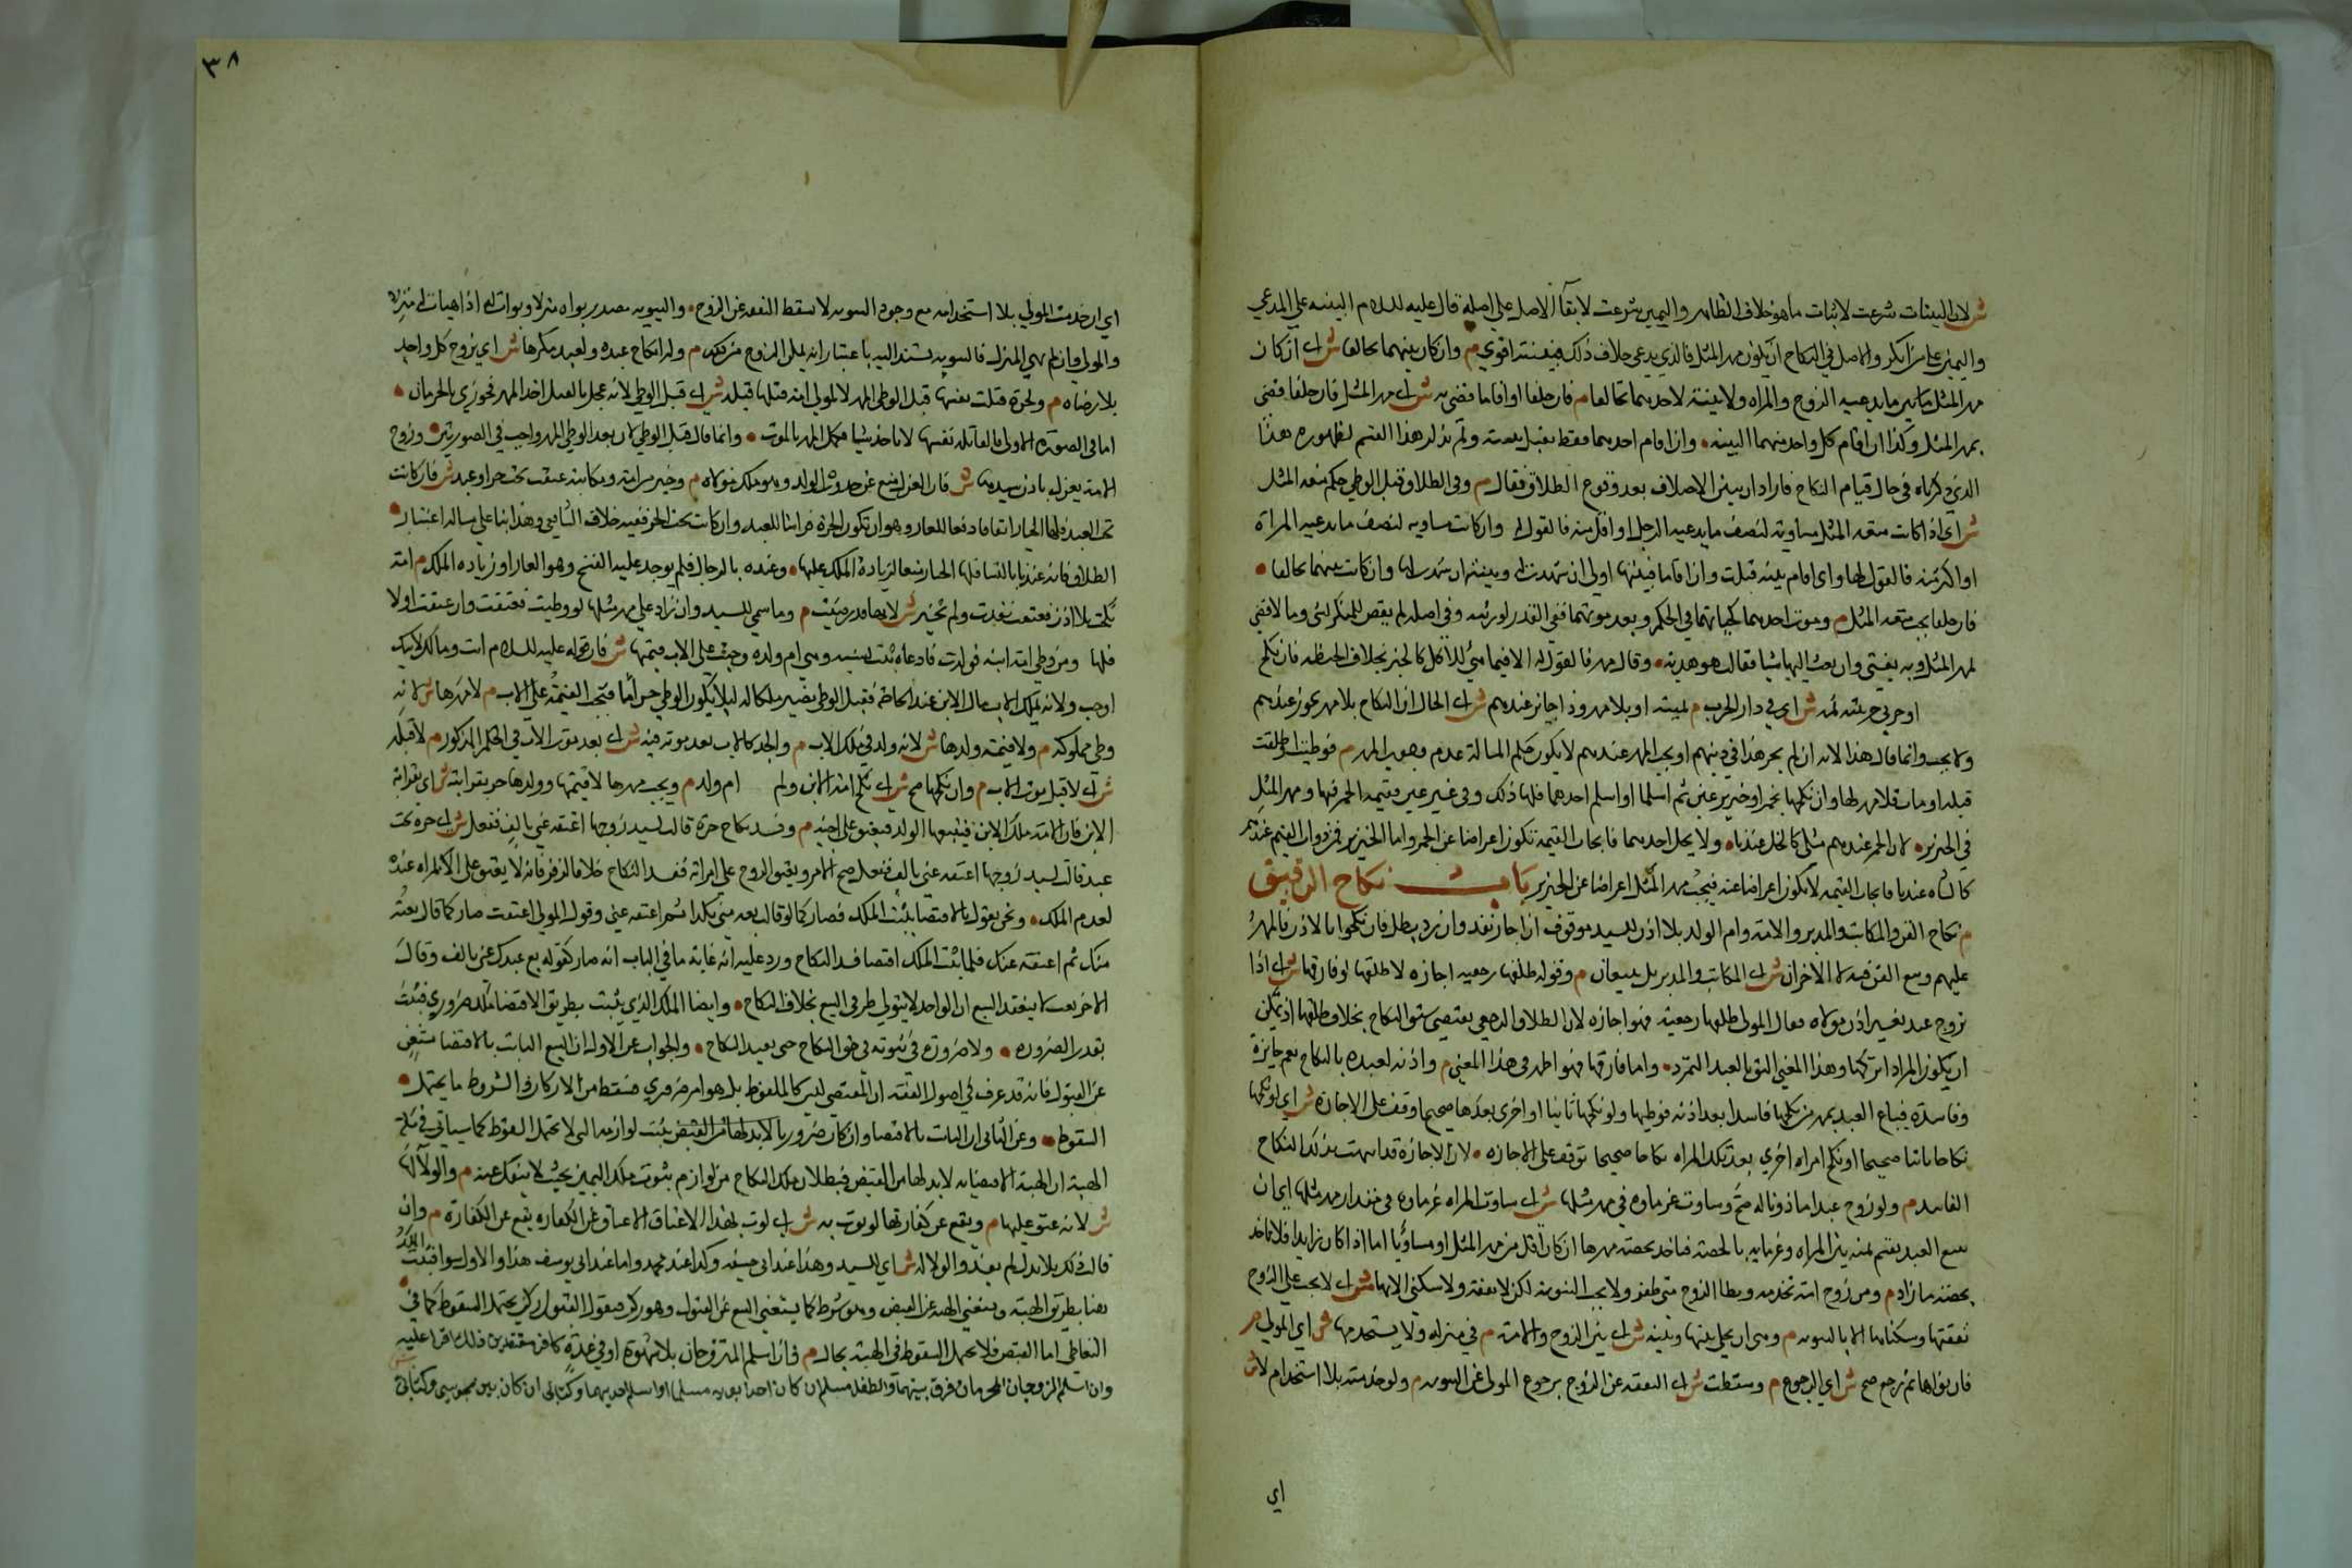 ش لان البينات شرعت لاثبات ما هو خلاف الظاهر واليمين شرعت لابقاء الاصل على اصله قال عليه السلام البينة على المدعي
واليمين على من انكر والاصل في النكاح ان يكون مهر المثل فالذي يدعي خلاف ذلك فبينته اقوي م وان كان بينهما تحالفا ش اي ان كان
مهر المثل بين ما يدعيه الزوج والمراه ولا بينة لاحدهما تحالفا م فان حلفا او اقاما قضي به ش اي مهر المثل فان حلفا قضي
بمهر المثل وكذا ان اقام كل واحد منهما البينه وان اقام احدهما فقط يقبل بينته ولم يذكر هذا القسم لظهوره هذا
الذي ذكرناه في حال قيام النكاح فاراد ان يبين الاختلاف بعد وقوع الطلاق فقال م وفي الطلاق قبل الوطي حكم متعه المثل
ش اي اذا كانت متعه المثل مساوية لنصف ما يدعيه الرجل او اقل منه فالقول له وان كانت مساويه لنصف ما يدعيه المراة
او اكثر منه فالقول لها واي اقام بينه قبلت وان اقاما فبينتها اولي ان شهدت له وبينته ان شهدت لها وان كانت بينهما تحالفا
فان حلفا يجب متعه المثل م وموت احدهما كحياتهما في الحكم وبعد موتهما ففي القدر لورثته وفي اصله لم يقض للمنكر بشي وما لا قضي
بمهر المثل وبه يفتي وان بعث اليها شيا فقالت هو هديه وقال مهر فالقول له الا فيما هيئ للاكل كالخبز بخلاف الحنطه فان نكح
او حربي حربية ثمه ش اي في دار الحرب م بميته او بلا مهر وذا جايز عندهم ش اي الحال ان النكاح بلا مهر يجوز عندهم
ولا يجب وانما قال هذا لانه ان لم يجز هذا في دينهم او يجب المهر عندهم لا يكون حكم المسالة عدم وجوب المهر م فوطيت او طلقت
قبله او مات فلا مهر لها وان نكحها بخمر او خنزير عين ثم اسلما او اسلم احدهما فلها ذلك وفي غير عين فقيمه الخمر فيها ومهر المثل
في الخنزير لان الخمر عندهم مثلي كالخل عندنا ولا يحل اخذهما فايجاب القيمة تكون اعراضا عن الخمر واما الخنزير فمن ذوات القيم عندهم
كالشاه عندنا فايجاب القيمه لا يكون اعراضا عنه فيجب مهر المثل اعراضا عن الخنزير باب نكاح الرقيق
م نكاح القن والمكاتب والمدبر والامة وام الولد بلا اذن السيد موقوف ان اجاز نفذ وان رد بطل فان نكحوا بالاذن فالمهر
عليهم وبيع القن فيه لا الاخران ش اي المكاتب والمدبر بل يسعيان م وقوله طلقها رجعيه اجازه لا طلقها او فارقها ش اي اذا
تزوج عبد بغير اذن مولاه فقال المولى طلقها رجعية فهو اجازه لان الطلاق الرجعي يقتضي سبق النكاح بخلاف طلقها اذ يمكن
ان يكون المراد اتركها وهذا المعني اليق بالعبد المتمرد واما فارقها فهو اظهر في هذا المعني م واذنه لعبده بالنكاح يعم جايزة
وفاسدة فيباع العبد بمهر من نكحها فاسدا بعد اذنه فوطيها ولو نكحها ثانيا او اخرى بعدها صحيحا وقف على الاجازة ش اي لو نكحها
نكاحا ثانيا صحيحا او نكح امراه اخري بعد تلك المراه نكاحا صحيحا توقف على الاجازه لان الاجازة قد انتهت بذلك النكاح
الفاسد م ولو زوج عبدا ماذونا له صح وساوت غرماوه في مهر مثلها ش اي ساوت المراه غرماوه في مقدار مهر مثلها اي ان
بيع العبد يقسم ثمنه بين المراه وغرمايه بالحصه فياخذ بحصته مهرها ان كان اقل من مهر المثل او مساويا اما اذا كان زايدا فلا ياخذ
بحصته ما زاد م ومن زوج امته تخدمه ويطا الزوج متي ظفر ولا يجب التبوية لكن لا نفقه ولا سكني الا بها ش اي لا يجب على الزوج
نفقتها وسكناها الا بالتبويه م وهي ان يخلي بينها وبينه ش اي بين الزوج والامة م في منزله ولا يستخدمها ش اي المولى م
فان بواها ثم رجع صح ش اي الرجوع م وسقطت ش اي النفقه عن الزوج برجوع المولى عن التبويه م ولو خدمته بلا استخدام لا ش
اي
٣٨
اي ان خدمت المولي بلا استخدامه مع وجود التبويه لا تسقط النفقه عن الزوج والتبويه مصدر بواه منزلا وبوات له اذا هيات له منزله
والمولي وان لم يهيئ المنزل فالتبويه يستند اليه باعتبار انه يمكن الزوج من ذلك م وله انكاح عبده وامته مكرها ش اي يزوج كل واحد
بلا رضاه م ولحرة قتلت نفسها قبل الوطي المهر لا لمولي امة قتلها قبله ش اي قبل الوطي لانه عجل بالقتل اخذ المهر فجوزي بالحرمان
اما في الصورة الاولى فالقاتلة نفسها لا تاخذ شيا فيكمل المهر بالموت وانما قال قبل الوطي لان بعد الوطي المهر واجب في الصورتين وزوج
الامة يعزل باذن سيدها ش فان العزل يمنع عن حدوث الولد وهو ملك مولاه م وخيرت امة ومكاتبة عتقت تحت حر او عبد ش فان كانت
تحت العبد فلها الخيار اتفاقا دفعا للعار وهو ان تكون الحرة فراشا للعبد وان كانت تحت الحر ففيه خلاف الشافعي وهذا بنا على مساله اعتبار
الطلاق فانه عندنا بالنسا فلها الخيار منعا لزيادة الملك عليها وعنده بالرجال فلم يوجد علة الفسخ وهو العار او زياده الملك م امة
نكحت بلا اذن فعتقت نفذت ولم تخير ش لانها قد رضيت م وما سمي للسيد وان زاد على مهر مثلها لو وطيت فعتقت وان عتقت اولا
فلها ومن وطي امة ابنه فولدت فادعاه ثبت نسبه وهي ام ولده وجب على الاب قيمتها ش فان قوله عليه السلام انت ومالك لابيك
اوجب ولانه تملك الاب مال الابن عند الحاجة فقبيل الوطي تصير ملكا له ليلا يكون الوطي حراما فتجب القيمة على الاب م لا مهرها ش لانه
وطي مملوكته م ولا قيمة ولدها ش لانه ولد في ملك الاب م والجد كالاب بعد موته فيه ش اي بعد موت الاب في الحكم المذكور م لا قبله
ش اي لا قبل موت الاب م وان نكحها صح ش اي نكح امة الابن ولم ام ولد م ويجب مهرها لا قيمتها وولدها حر بقرابته ش اي بقرابة
الابن فان الامة ملك الابن فيتبعها الولد فيعتق على اخيه م وفسد نكاح حرة قالت لسيد زوجها اعتقه عني بالف ففعل ش اي حرة تحت
عبد قالت لسيد زوجها اعتقه عني بالف ففعل صح الامر ويعتق الزوج على امراته ففسد النكاح خلافا لزفر فانه لا يعتق على المراه عنده
لعدم الملك ونحن نقول بالاقتضا يثبت الملك فصار كما لو قال بعه مني بكذا ثم اعتقه عني وقول المولي اعتقت صار كما قال بعته
منك ثم اعتقته عنك فلما ثبت الملك اقتضا فسد النكاح ورد عليه انه غاية ما في الباب انه صار كقوله بع عبدك عني بالف وقال
الاخر بعت لا ينعقد البيع لان الواحد لا يتولي طرفي البيع بخلاف النكاح وايضا الملك الذي يثبت بطريق الاقتضا ملك ضروري فيثبت
بقدر الضرورة ولا ضرورة في ثبوته في حق النكاح حتى يفسد النكاح والجواب عن الاول ان البيع الثابت بالاقتضا مستغن
عن القبول فانه قد عرف في اصول الفقه ان المقتضي ليس كالملفوظ بل هو امر ضروري فيسقط من الاركان والشروط ما يحتمل
السقوط وعن الثاني ان الثابت بالاقتضا وان كان ضروريا لابد لها من القبض يثبت لوازمه التي لا تحتمل السقوط كما سياتي في
الهبة ان الهبة الاقتضايه لابد لها من القبض فبطلان ملك النكاح من لوازم ثبوت ملك اليمين بحيث لا ينفك عنه م والولا لها
ش لانه عتق عليها م ويقع عن كفارتها لو نوت به ش اي لو نوت بهذا الاعتاق الاعتاق عن الكفاره يقع عن الكفارة م وان
قالت ذلك بلا بدل لم يفسد والولا له ش اي للسيد وهذا عند ابي حنيفه وكذا عند محمد واما عند ابي يوسف هذا والاول سوا فيثبت الملك
هنا بطريق الهبة ويستغني الهبه عن القبض وهو شرط كما يستغني البيع عن القبول وهو ركن فنقول القبول ركن يحتمل السقوط كما في
التعاطي اما القبض فلا يحتمل السقوط في الهبة بحال م وان اسلم المتزوجان بلا شهود او في عدة كافر معتقدين ذلك اقرا عليه
وان اسلم الزوجان المحرمان فرق بينهما والطفل مسلم ان كان احد ابويه مسلما او اسلم احدهما وكتابي ان كان بين مجوسي وكتابي